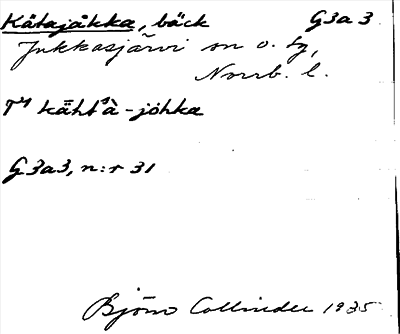 Kåtajåkka, bäck G3a 3
Jukkasjärvi sn o. tg,
Norrb. l.
T4 kāht'à-johka
G3a3, n:r 31
Björn Collinder 1935